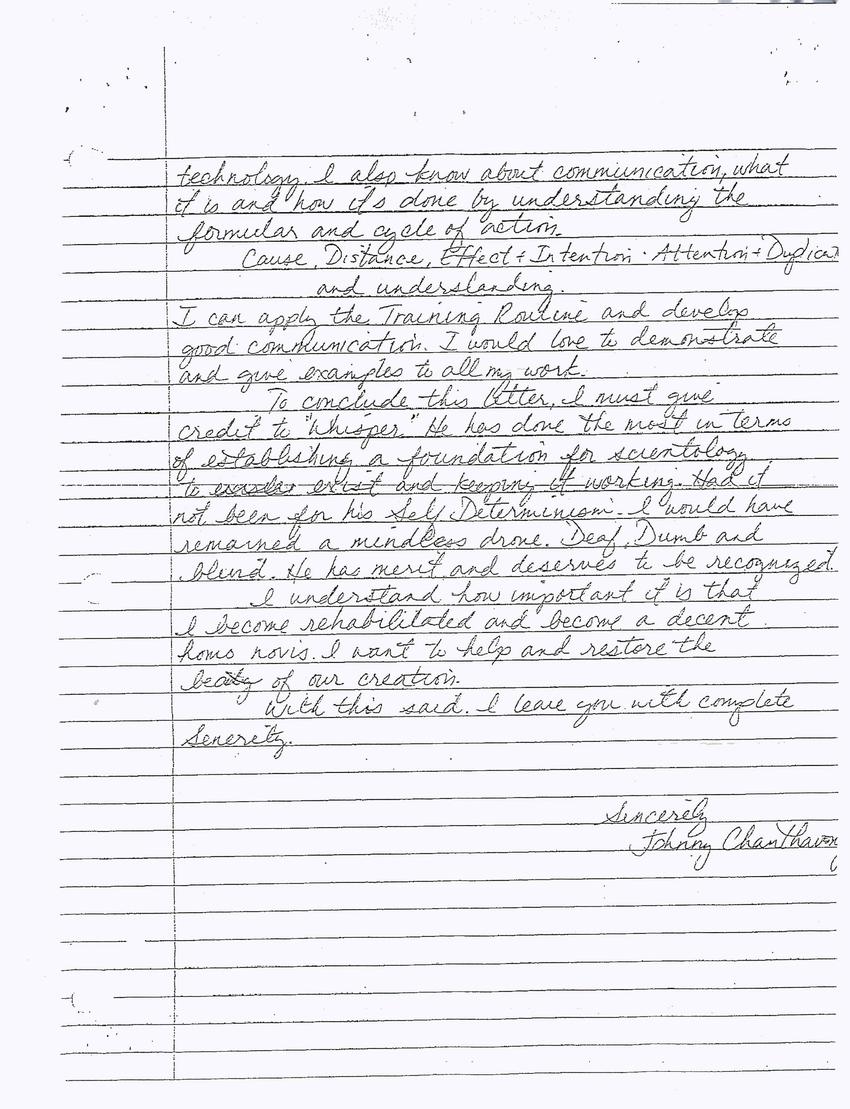 technology, I also know about communication, what
it is and how it's done by understanding the
formular and cycle of action.
Cause, Distance, Effect + Intention · Attention + Duplicat
and understanding.
I can apply the Training Routine and develop
good communication. I would love to demonstrate
and give examples to all my work.
To conclude this letter, I must give
credit to "Whisper." He has done the most in terms
of establishing a foundation for scientology
to exist and keeping it working. Had it
not been for his Self Determinism. I would have
remained a mindless drone. Deaf, Dumb and
blind. He has merit and deserves to be recognized.
I understand how important it is that
I become rehabilitated and become a decent
homo novis. I want to help and restore the
beaity of our creation.
With this said. I leave you with complete
Senerity.
Sincerely
Johnny Chanthavon